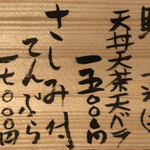 天丼天茶天バラ
一五〇〇円
さしみ付
てんぷら
一七〇〇円